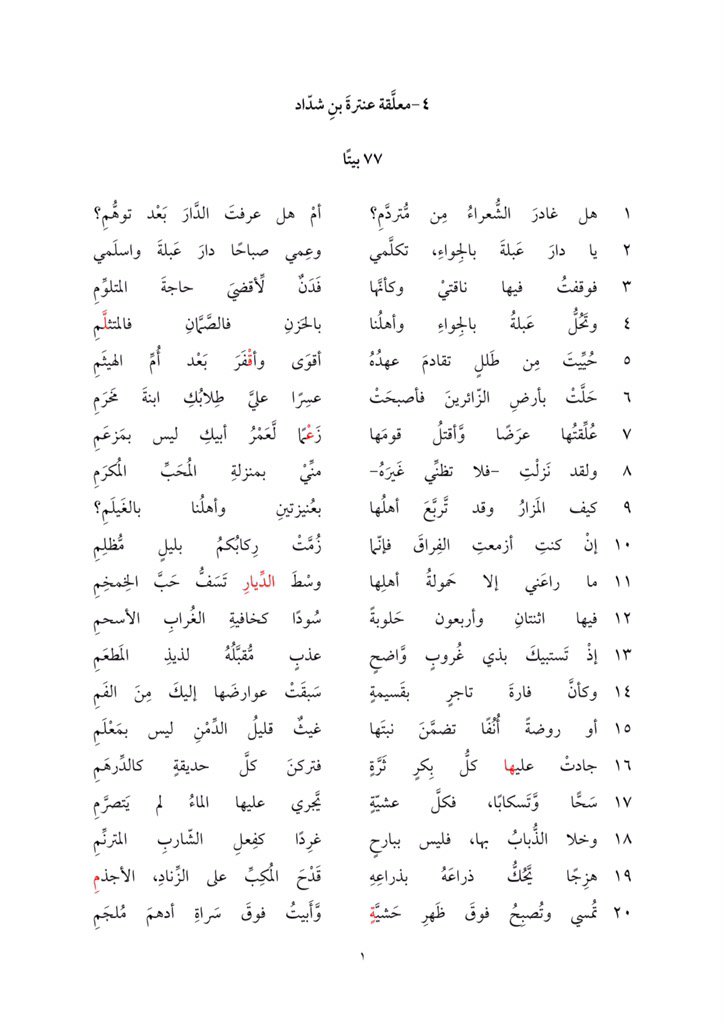 ٤-معلَّقة عنترةَ بنِ شدّاد
٧٧ بيتًا
١ هل غادرَ الشُّعراءُ مِن مُّتردَّمِ؟ أمْ هل عرفتَ الدَّارَ بَعْد توهُّمِ؟
٢ يا دارَ عَبلةَ بالجِواءِ، تكلَّمي وعِمي صباحًا دارَ عَبلةَ واسلَمي
٣ فوقفتُ فيها ناقتيْ وكأنَّها فَدَنٌ لِّأقضيَ حاجةَ المتلوِّمِ
٤ وتَحُلُّ عَبلةُ بالجِواءِ وأهلُنا بالحَزنِ فالصَّمَّانِ فالمتثلَّمِ
٥ حُيِّيتَ مِن طَللٍ تقادمَ عهدُهُ أقوَى وأقْفَرَ بَعْد أُمِّ الهيثَمِ
٦ حَلَّتْ بأرضِ الزّائرينَ فأصبحَتْ عسِرًا عليَّ طِلابُكِ ابنةَ مَخرَمِ
٧ عُلِّقتُها عرَضًا وَّأقتلُ قومَها زَعْمًا لَّعَمْرُ أبيكِ ليس بمَزعَمِ
٨ ولقد نَزلْتِ -فلا تظنِّي غَيرَهُ- منِّيْ بمنزلةِ المُحَبِّ المُكرَمِ
٩ كيف المَزارُ وقد تَّربَّعَ أهلُها بعُنيزتينِ وأهلُنا بالغَيلَمِ؟
١٠ إنْ كنتِ أزمعتِ الفِراقَ فإنّما زُمَّتْ رِكابُكمُ بليلٍ مُّظلِمِ
١١ ما راعَني إلا حَمولةُ أهلِها وسْطَ الدِّيارِ تَسَفُّ حَبَّ الخِمخِمِ
١٢ فيها اثنتانِ وأربعون حَلوبةً سُودًا كخافيةِ الغُرابِ الأسحمِ
١٣ إذْ تَستبيكَ بذي غُروبٍ وَّاضحٍ عذبٍ مُّقبَّلُهُ لذيذِ المَطعَمِ
١٤ وكأنَّ فارةَ تاجرٍ بقَسيمةٍ سَبقَتْ عوارضَها إليكَ مِنَ الفَمِ
١٥ أو روضةً أُنُفًا تضمَّنَ نبتَها غيثٌ قليلُ الدِّمْنِ ليس بمَعْلَمِ
١٦ جادتْ عليها كلُّ بِكرٍ ثَرَّةٍ فتركنَ كلَّ حديقةٍ كالدِّرهَمِ
١٧ سَحًّا وَّتَسكابًا، فكلَّ عشيّةٍ يَّجري عليها الماءُ لم يَتصرَّمِ
١٨ وخلا الذُّبابُ بها، فليس ببارحٍ غرِدًا كفِعلِ الشّاربِ المترنِّمِ
١٩ هزِجًا يَّحُكُّ ذراعَهُ بذراعِهِ قَدْحَ المُكِبِّ على الزِّنادِ، الأجذمِ
٢٠ تُمسي وتُصبِحُ فوقَ ظَهرِ حَشيَّةٍ وَّأَبيتُ فوقَ سَراةِ أدهمَ مُلجَمِ
١